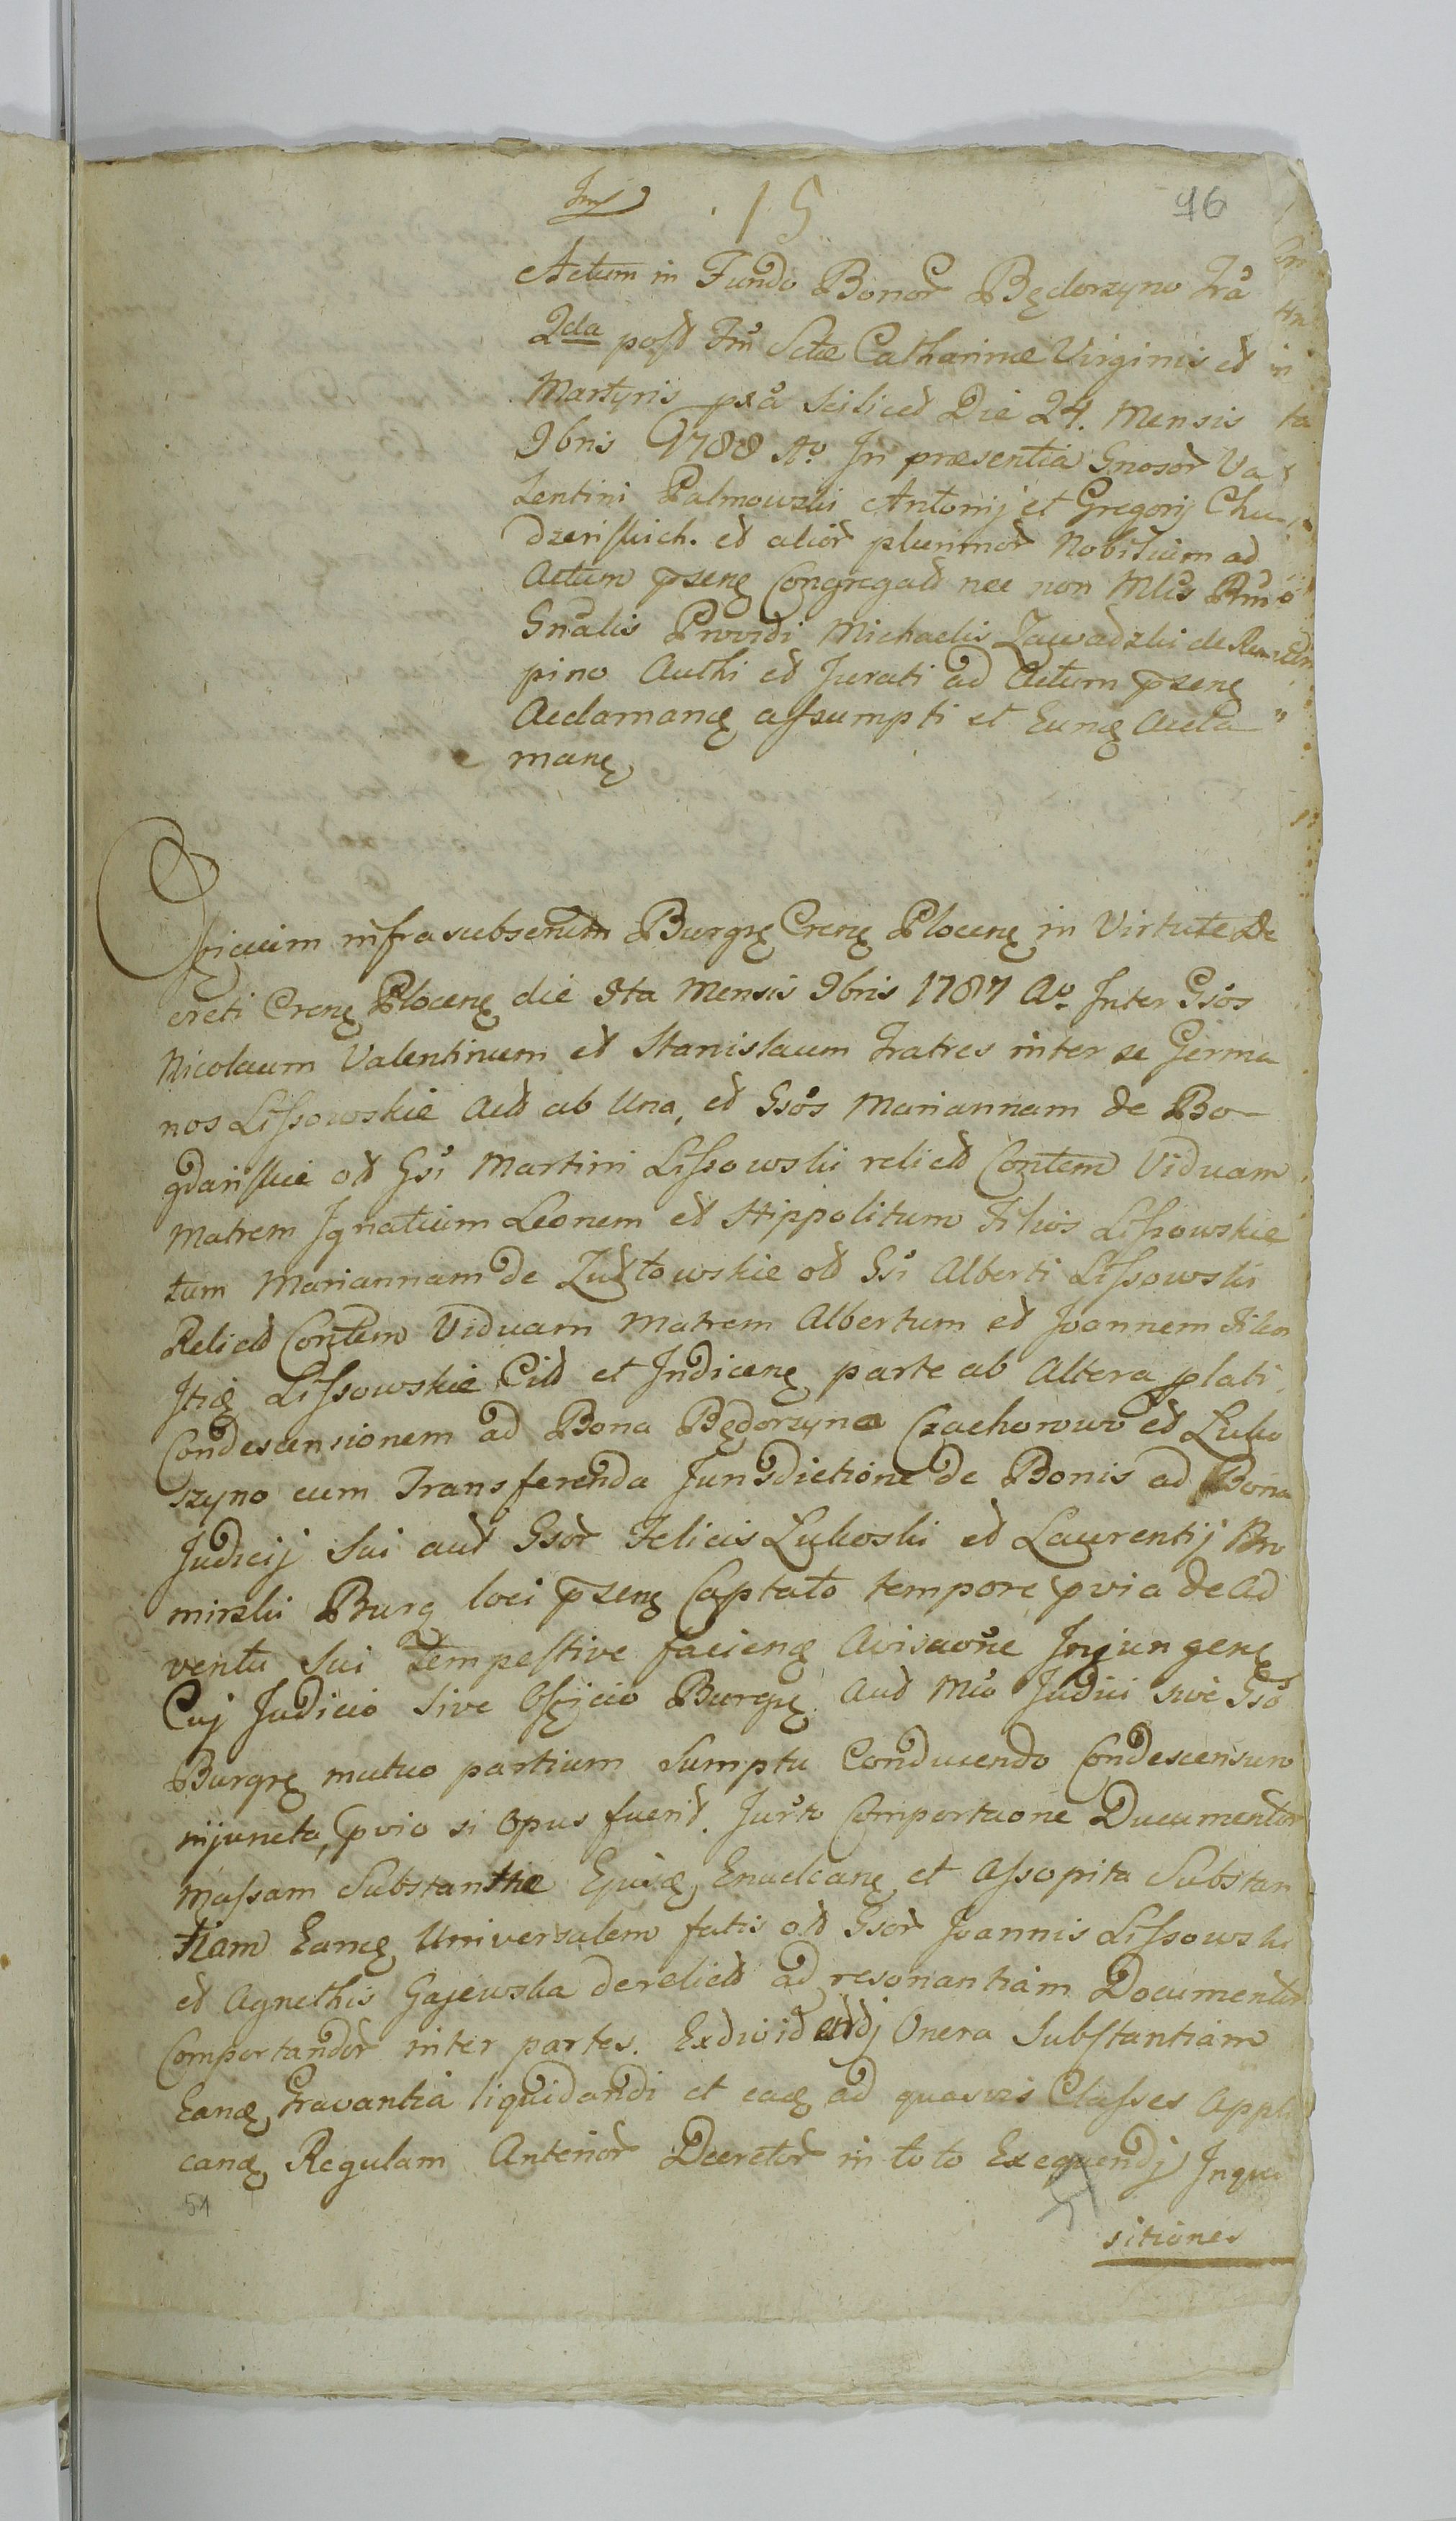 15
96
Actum in Fundo Bonor Będorzyno Fra
2da post Fm Sctæ Catharinæ Virginis et
Martyris pxa scilicet Die 24. Mensis
9bris 1788 Ao. In præsentia Gnosor Va
lentini Palmowski Antonij et Gregorij Chu
dzeńskich. et alior plurimor Nobilium ad
Actum pseng Congregat nec non Mlis Rni
Gnalis Providi Michaelis Zawadzki de Rem
pino Authi et Jurati ad Actum pseng
Acclamang assumpti et Eung Accla
mang
Officium infrasubserum Burgrg Creng Ploceng in Virtute De
creti Creng Ploceng die 9ta Mensis 9bris 1787 Ao. Inter Gsos
Nicolaum Valentinum et Stanislaum Fratres inter se Germa
nos Lissowskie Act ab Una, et Gsos Mariannam de Bo-
gdańskie olt Gsi Martini Lissowski relict Contem Viduam
Matrem Ignatium Leonem et Hippolitum Filios Lissowskie
tum Mariannam de Żułtowskie olt Gsi Alberti Lissowski
Relict Contem Viduam Matrem Albertum et Joannem Filios
Itid Lissowskie Cit et Indiceng parte ab Altera plati
Condescensionem ad Bona Będorzyno Czachorowo et Luko
szyno cum Transferenda Jurisdictione de Bonis ad Bona
Judicij sui aut Gsor Felicis Lukoski et Laurentij Bro
mirski Burg loci pseng Captato tempore pvia de ad
ventu sui tempestive facieng Avisaone Injungeng
Cuj Judicio sive Officio Burgrg aut Mo Judici sive Gso
Burgrg mutuo partium sumptu Conducendo Condescensuro
injuncto, pvio si Opus fuerit. Jurto Comportaone Documentor
Massam Substantiæ Ejusd, Enucleang et Assopita Substan
tiam Eamd Universalem fatis olt Gsor Joannis Lissowski
et Agnethis Gajewska derelict ad resonantiam Documentor
Comportandor inter partes. Exdividendj Onera Substantiam
Eand Gravantia liquidandi et ead ad quasvis Classes Appli
cand Regulam Anterior Decretor in toto Exequendj Inqui
51
sitiones